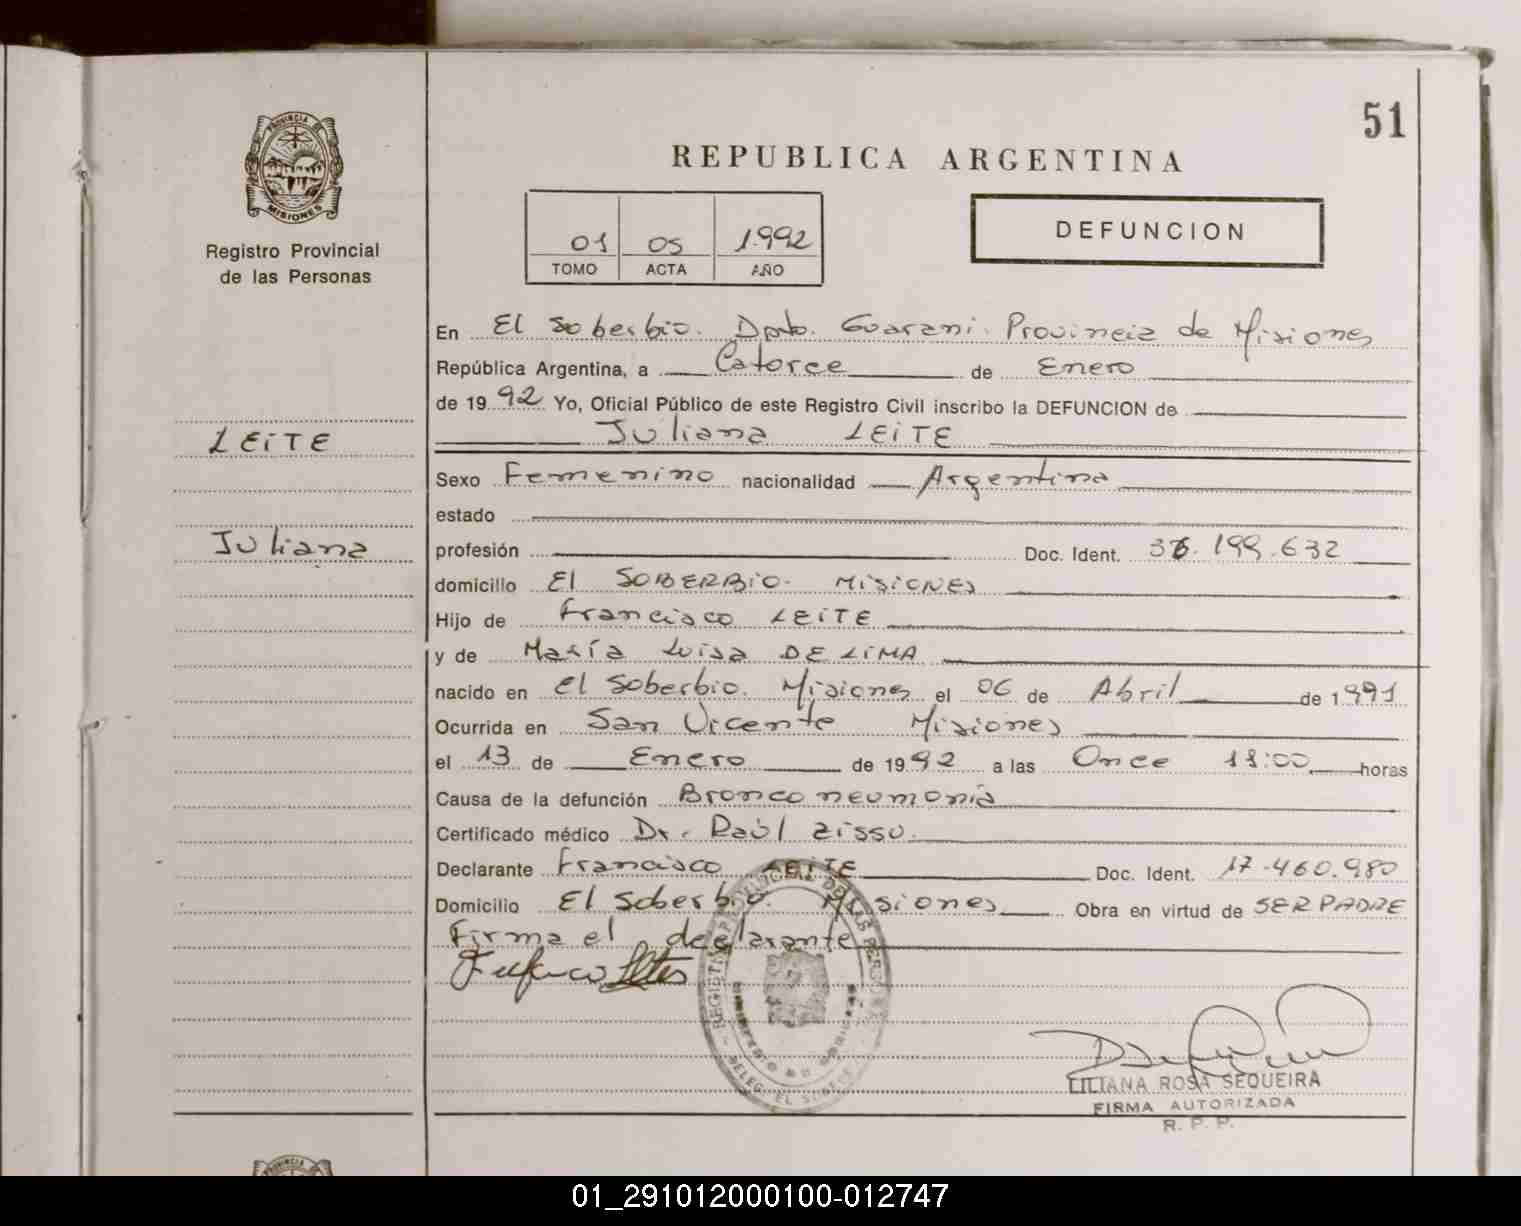 51
PROVINCIA DE
MISIONES
Registro Provincial
de las Personas
REPUBLICA ARGENTINA
01 05 1.992
TOMO ACTA AÑO
DEFUNCION
En El Soberbio. Dpto. Guarani. Provincia de Misiones
República Argentina, a Catorce de Enero
de 1992 Yo, Oficial Público de este Registro Civil inscribo la DEFUNCION de
Juliana LEITE
LEITE
Juliana
Sexo Femenino nacionalidad Argentina
estado
profesión Doc. Ident. 36.199.632
domicilio El SOBERBIO. MISIONES
Hijo de Francisco LEITE
y de María Luisa DE LIMA
nacido en el Soberbio. Misiones el 06 de Abril de 1991
Ocurrida en San Vicente Misiones
el 13 de Enero de 1992 a las Once 11:00 horas
Causa de la defunción Bronconeumonia
Certificado médico Dr. Raúl Zisso.
Declarante Francisco LEITE Doc. Ident. 17.460.980
Domicilio El Soberbio. Misiones Obra en virtud de SER PADRE
Firma el declarante
LILIANA ROSA SEQUEIRA
FIRMA AUTORIZADA
R. P. P.
01_291012000100-012747